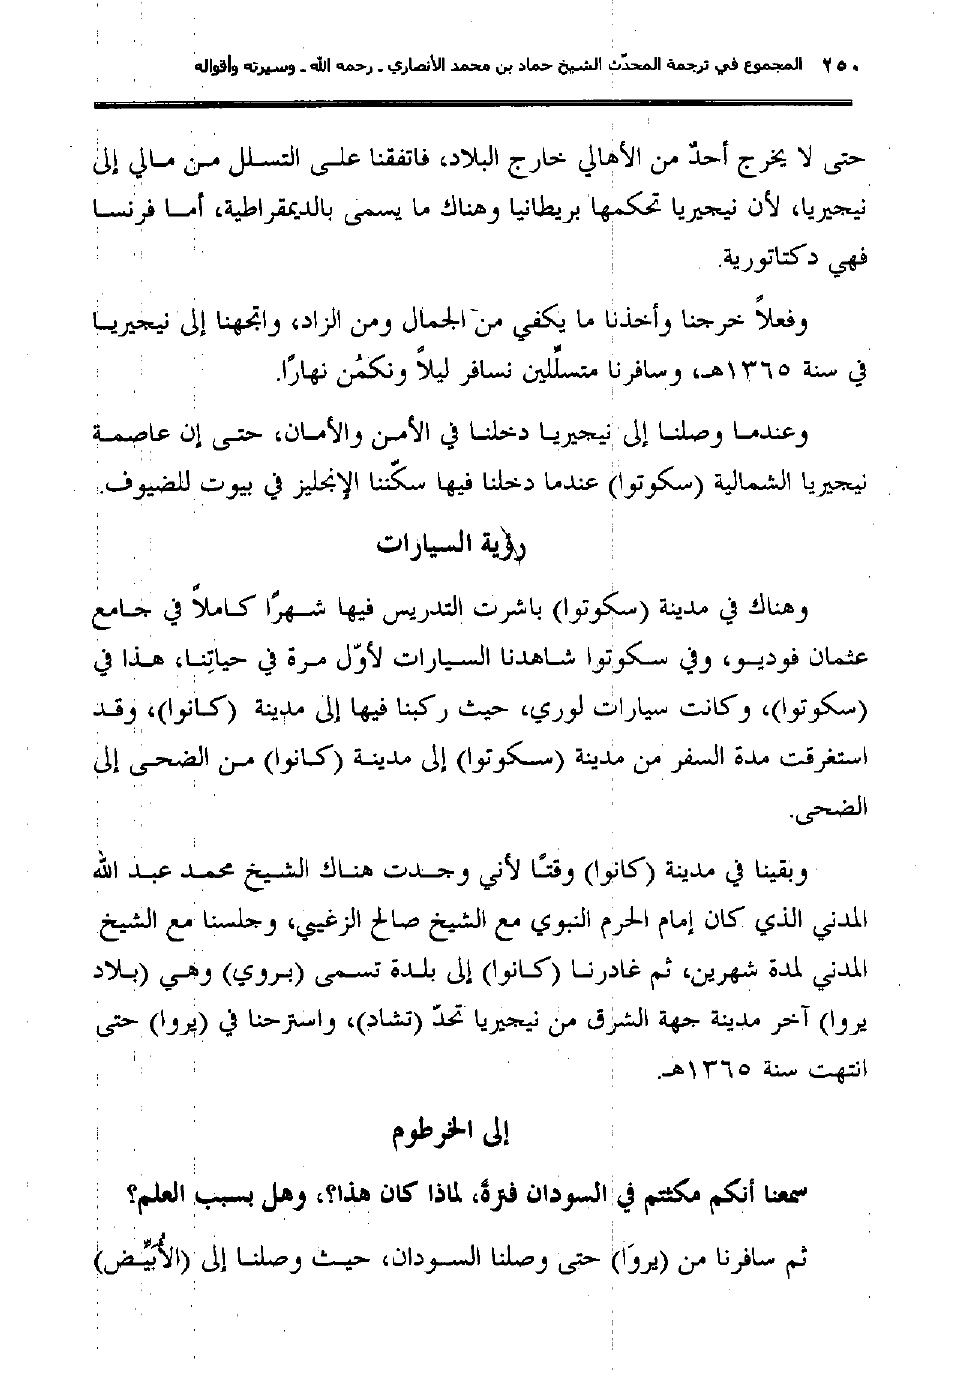 ٢٥٠ المجموع في ترجمة المحدّث الشيخ حماد بن محمد الأنصاري ـ رحمه الله ـ وسيرته وأقواله
حتى لا يخرج أحدٌ من الأهالي خارج البلاد، فاتفقنا على التسلل من مالي إلى
نيجيريا، لأن نيجيريا تحكمها بريطانيا وهناك ما يسمى بالديمقراطية، أما فرنسا
فهي دكتاتورية.
وفعلاً خرجنا وأخذنا ما يكفي من الجمال ومن الزاد، واتجهنا إلى نيجيريا
في سنة ١٣٦٥هـ، وسافرنا متسلّلين نسافر ليلاً ونكمُن نهارًا.
وعندما وصلنا إلى نيجيريا دخلنا في الأمن والأمان، حتى إن عاصمة
نيجيريا الشمالية (سكوتوا) عندما دخلنا فيها سكّننا الإنجليز في بيوت للضيوف.
رؤية السيارات
وهناك في مدينة (سكوتوا) باشرت التدريس فيها شهرًا كاملاً في جامع
عثمان فوديو، وفي سكوتوا شاهدنا السيارات لأوّل مرة في حياتنا، هذا في
(سكوتوا)، وكانت سيارات لوري، حيث ركبنا فيها إلى مدينة (كانوا)، وقد
استغرقت مدة السفر من مدينة (سكوتوا) إلى مدينة (كانوا) من الضحى إلى
الضحى.
وبقينا في مدينة (كانوا) وقتًا لأني وجدت هناك الشيخ محمد عبد الله
المدني الذي كان إمام الحرم النبوي مع الشيخ صالح الزغيبي، وجلسنا مع الشيخ
المدني لمدة شهرين، ثم غادرنا (كانوا) إلى بلدة تسمى (بروي) وهي (بلاد
يروا) آخر مدينة جهة الشرق من نيجيريا تحدّ (تشاد)، واسترحنا في (يروا) حتى
انتهت سنة ١٣٦٥هـ.
إلى الخرطوم
سمعنا أنكم مكثتم في السودان فترةً، لماذا كان هذا؟، وهل بسبب العلم؟
ثم سافرنا من (يروا) حتى وصلنا السودان، حيث وصلنا إلى (الأُبيّض)